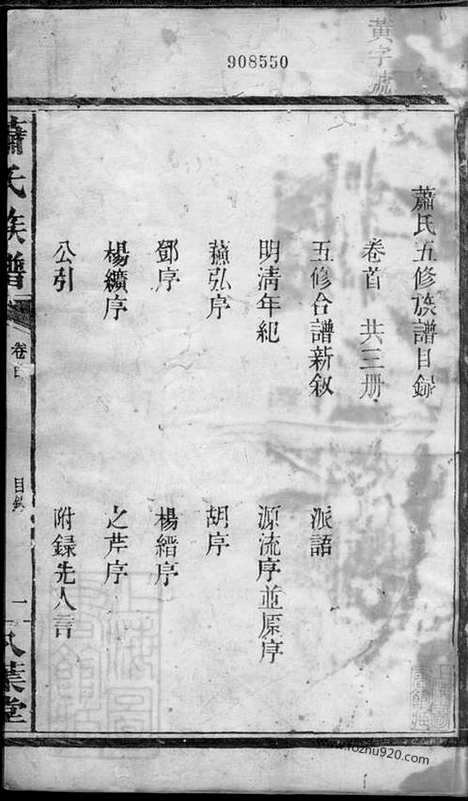 908550
黃字號
蕭氏五修族譜目錄
卷首 共三册
五修合譜新叙 派語
明清年紀 源流序並原序
蕪弘序 胡序
鄧序 楊縉序
楊纘序 之芹序
公引 附録先人言
蕭氏族譜
卷首
目錄
一
八葉堂
www.fozhu920.com